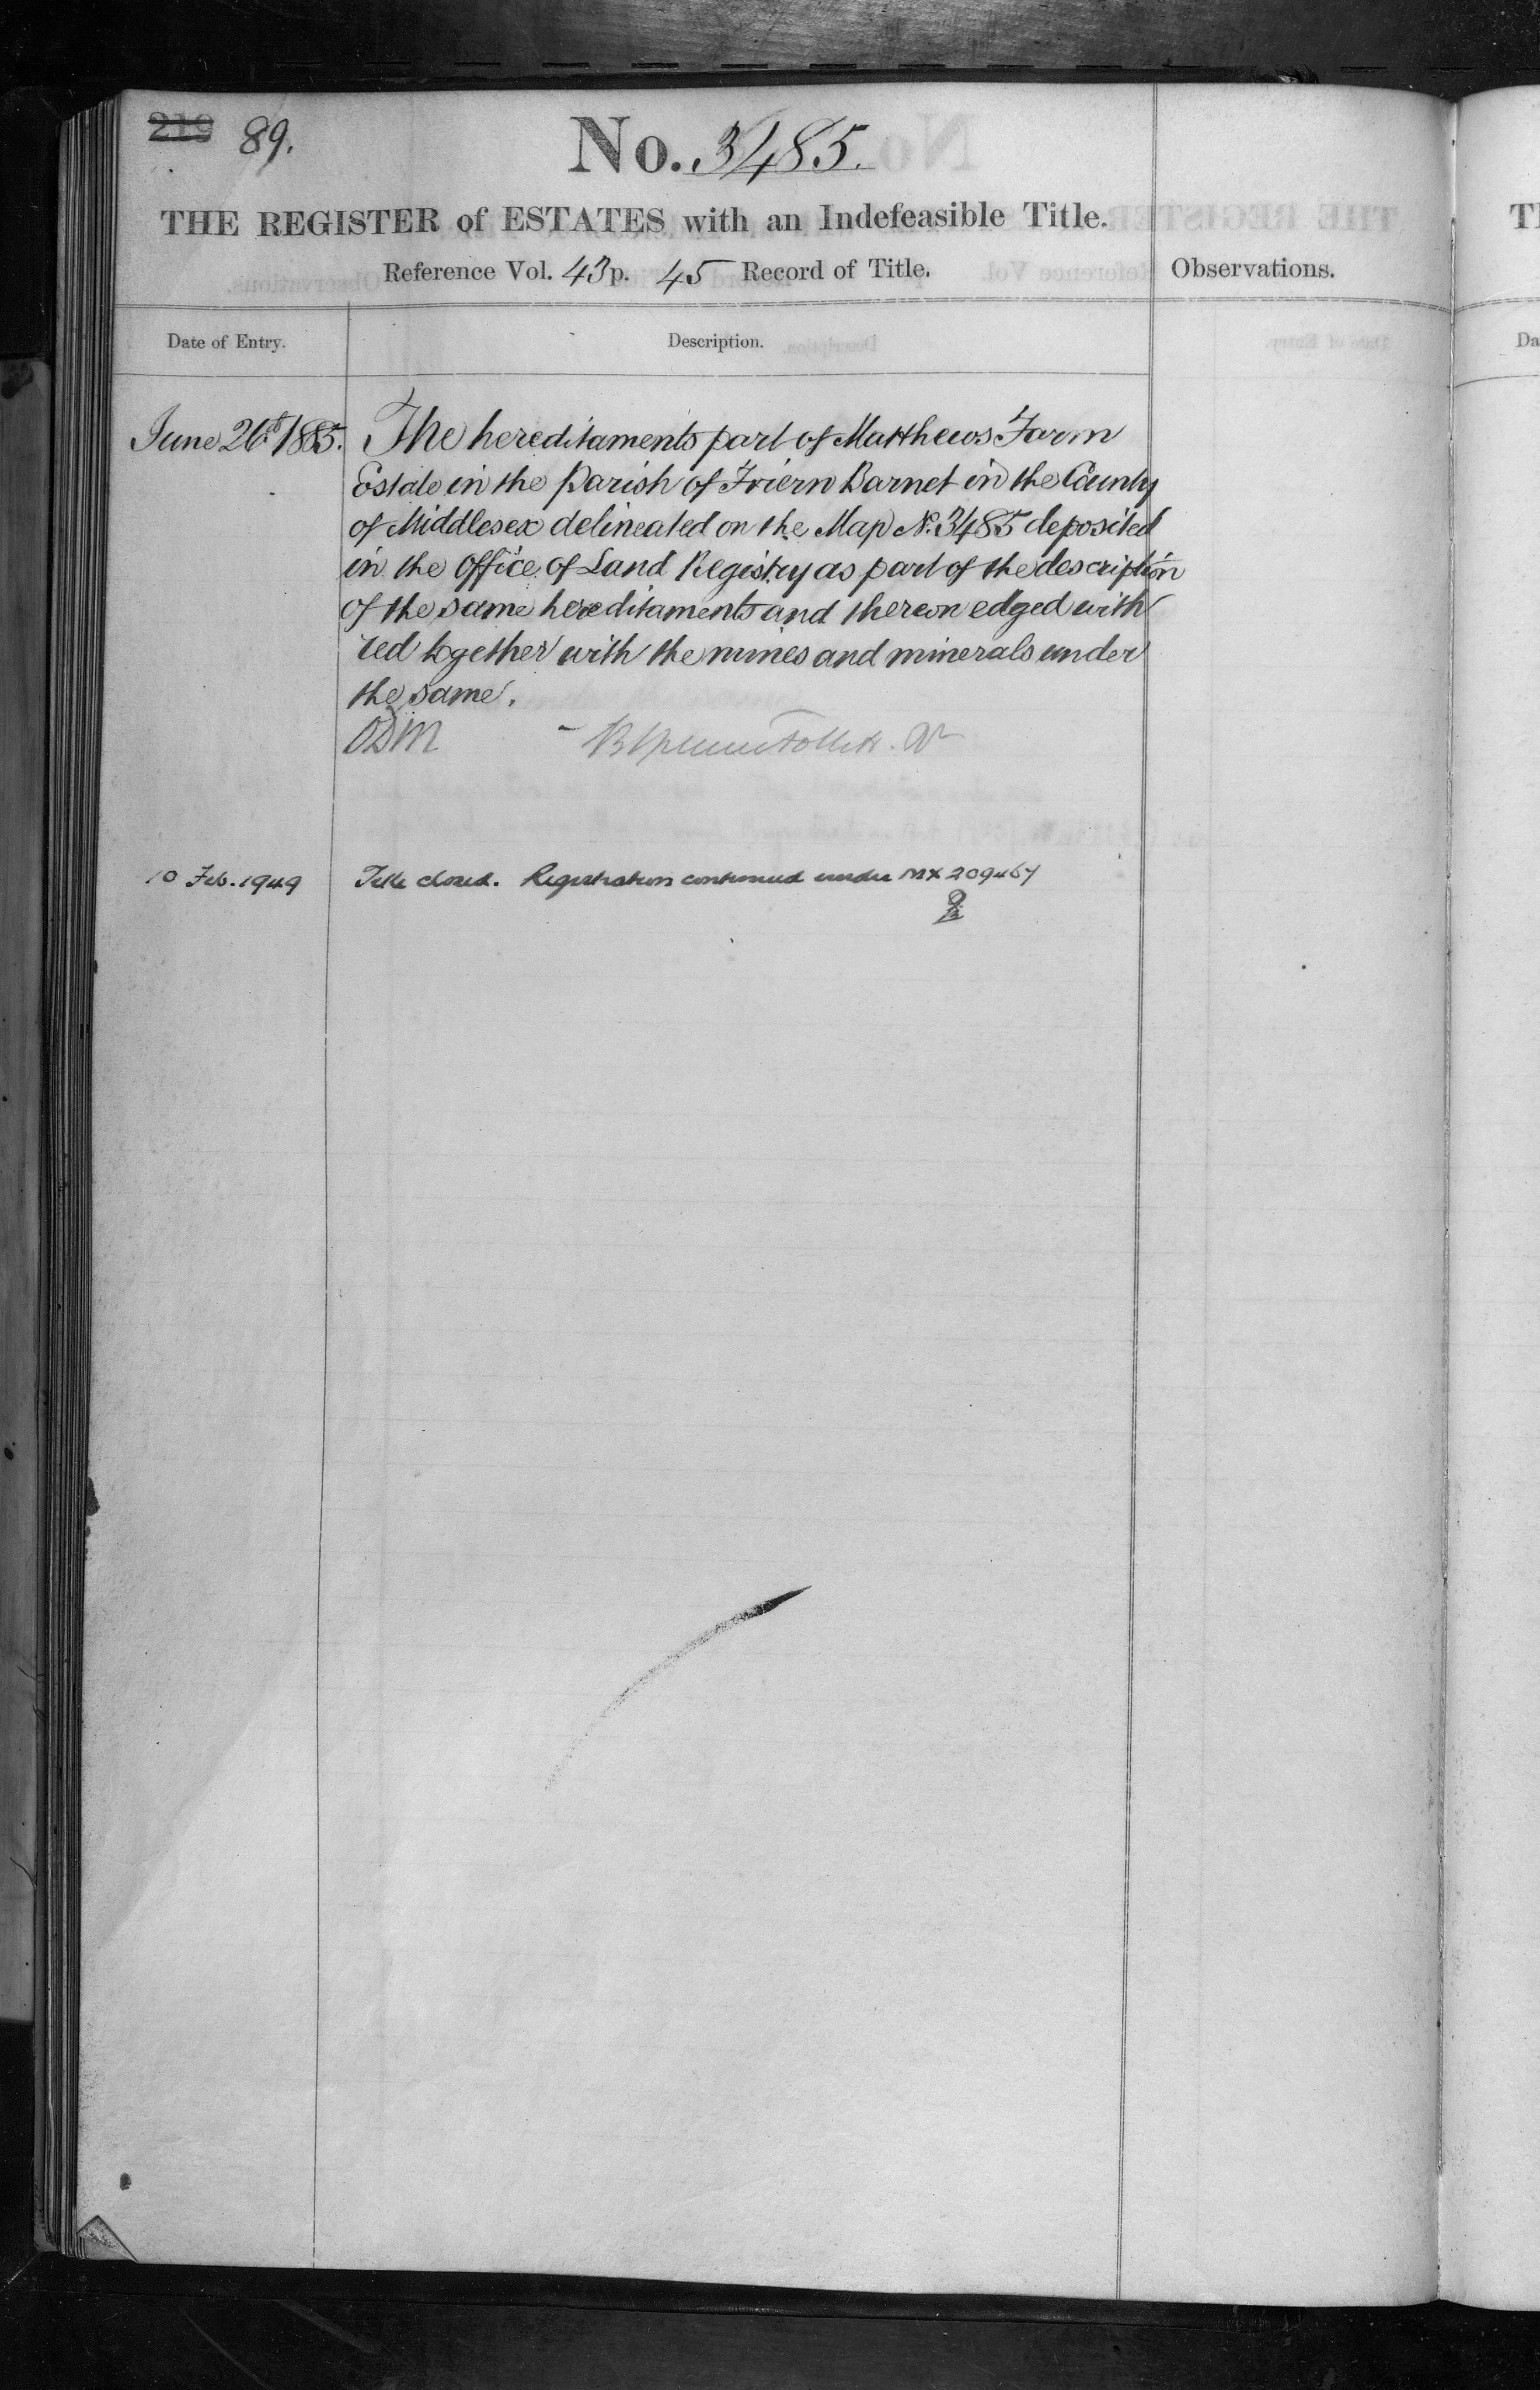 219 89.
No. 3485.
THE REGISTER of ESTATES with an Indefeasible Title.
Reference Vol. 43 p. 45 Record of Title.
Observations.
Date of Entry. Description.
June 26th 1885. The hereditaments part of Matthews Farm
Estate in the Parish of Friern Barnet in the County
of Middlesex delineated on the Map No. 3485 deposited
in the Office of Land Registry as part of the description
of the same hereditaments and thereon edged with
red together with the mines and minerals under
the same.
10 Feb. 1949 Title closed. Registration continued under MX 209467